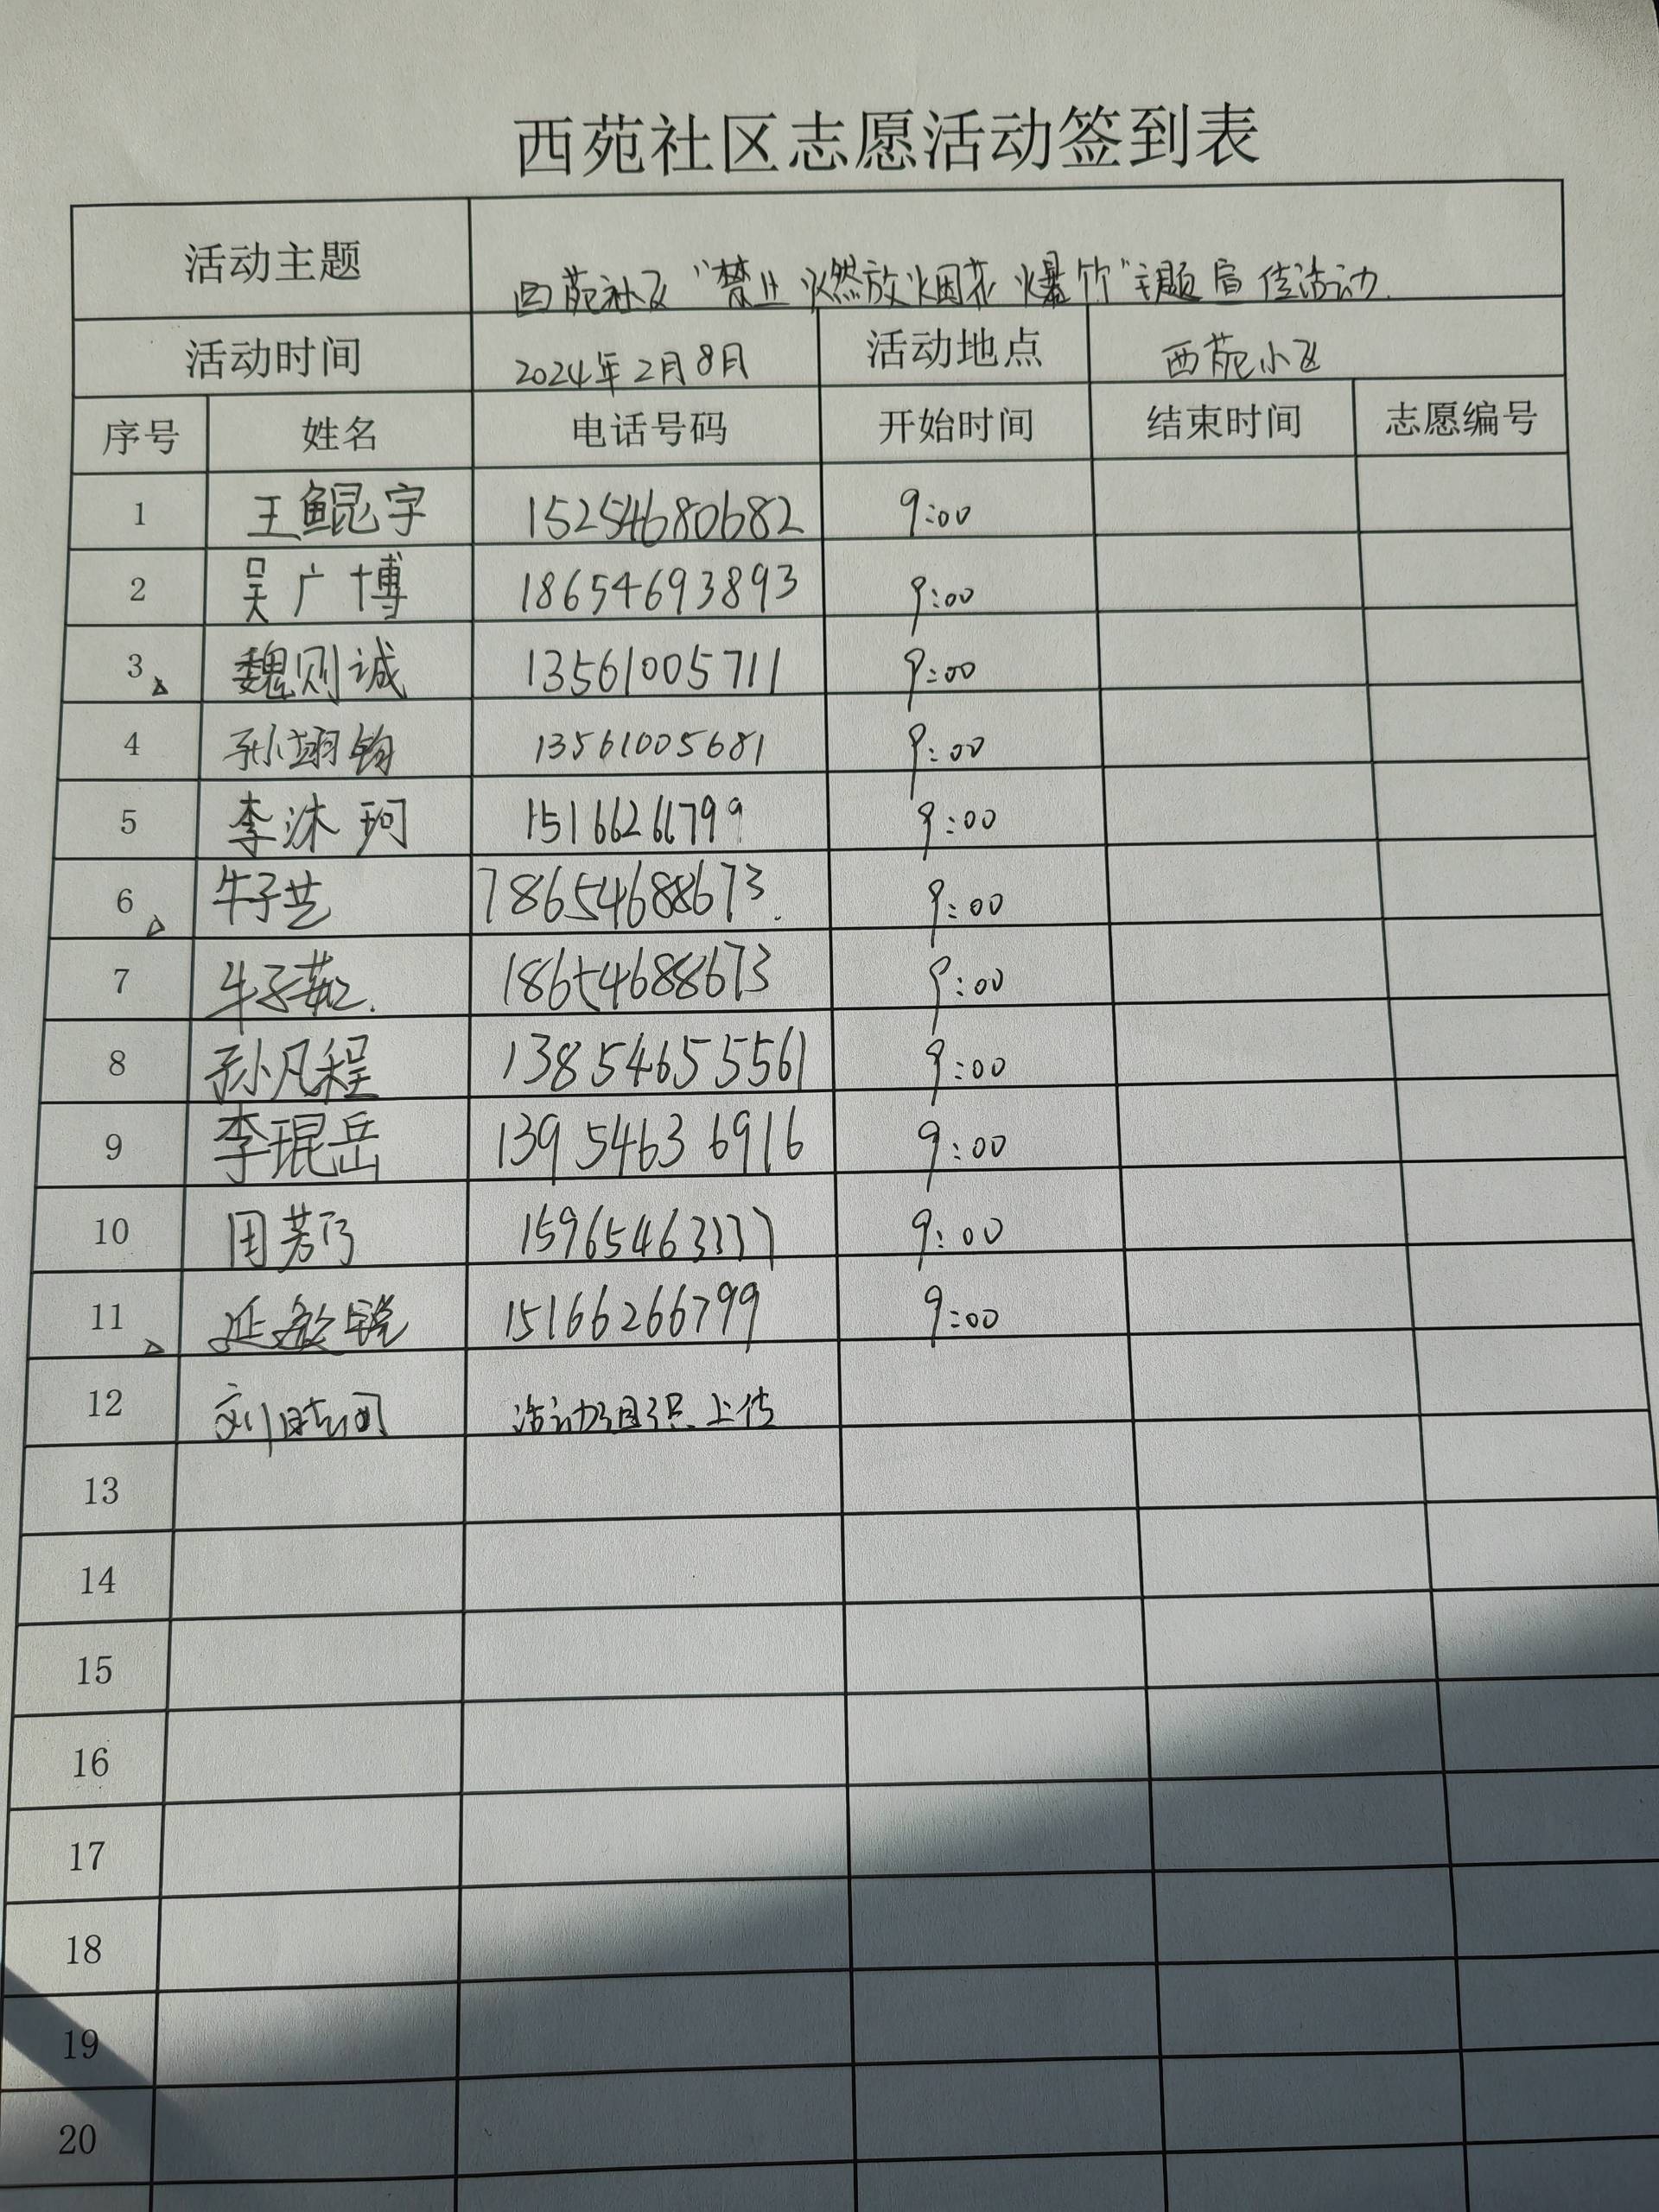 西苑社区志愿活动签到表
活动主题 西苑社区“禁止燃放烟花爆竹”主题宣传活动.
活动时间 2024年2月8日 活动地点 西苑小区
序号 姓名 电话号码 开始时间 结束时间 志愿编号
1 王鲲宇 15254680682 9:00
2 吴广博 18654693893 9:00
3 魏则诚 13561005711 9:00
4 孙翊钧 13561005681 9:00
5 李沐珂 15166266799 9:00
6 牛子芸 18654688673. 9:00
7 牛子茹. 18654688673 9:00
8 孙凡程 13854655561 9:00
9 李琨岳 13954636916 9:00
10 9:00
11 延敏锐 15166266799 9:00
12 上传
13
14
15
16
17
18
19
20